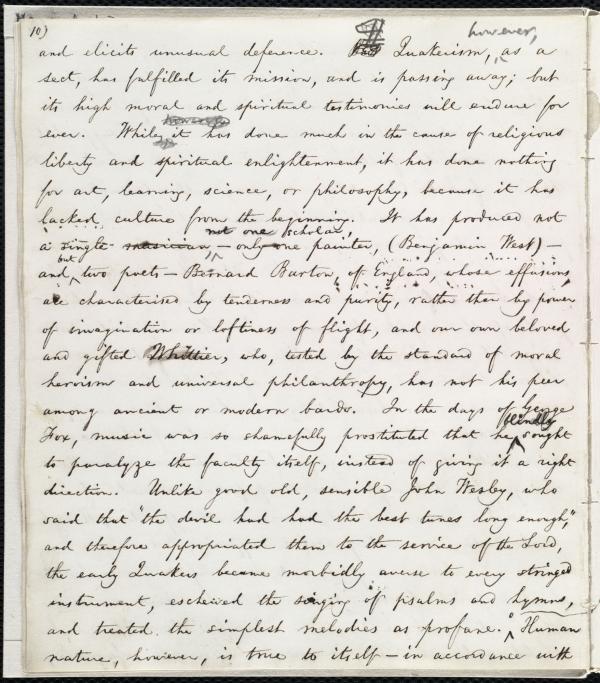 10)
however,
and elicits unusual deference. Quakerism, as a
sect, has fulfilled its mission, and is passing away; but
its high moral and spiritual testimonies will endure for
ever. While it has done much in the cause of religious
liberty and spiritual enlightenment, it has done nothing
for art, learning, science, or philosophy, because it has
lacked culture from the beginning. It has produced not
not one scholar,
a single musician, – only one painter, (Benjamin West) –
but
and two poets – Bernard Barton, of England, whose effusions
are characterised by tenderness and purity, rather than by power
of imagination or loftiness of flight, and our own beloved
and gifted Whittier, who, tested by the standard of moral
heroism and universal philanthropy, has not his peer
among ancient or modern bards. In the days of George
blindly
Fox, music was so shamefully prostituted that he sought
to paralyze the faculty itself, instead of giving it a right
direction. Unlike good old, sensible John Wesley, who
said that "the devil had had the best tunes long enough,"
and therefore appropriated them to the service of the Lord,
the early Quakers became morbidly averse to every stringed
instrument, eschewed the singing of psalms and hymns,
and treated the simplest melodies as profane. Human
nature, however, is true to itself – in accordance with